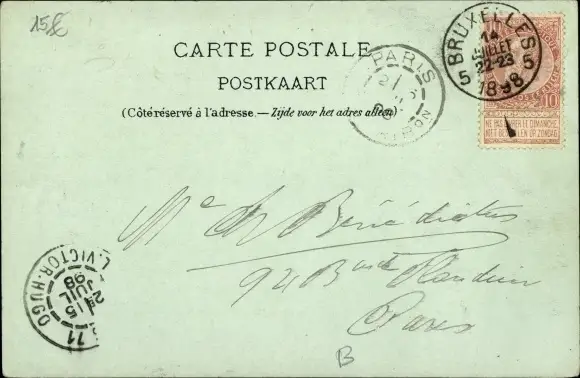 158
CARTE POSTALE
POSTKAART
(Côté réservé à l'adresse. — Zijde voor het adres alleen)
PARIS
BRUXELLES
14
JUILLET
22-23
5 5
1898
10
NE PAS LIVRER LE DIMANCHE
NIET BESTELLEN OP ZONDAG
Bénédictus
92 Bd
Paris
VICTOR HUGO
2E
15
JUIL
98
71
B